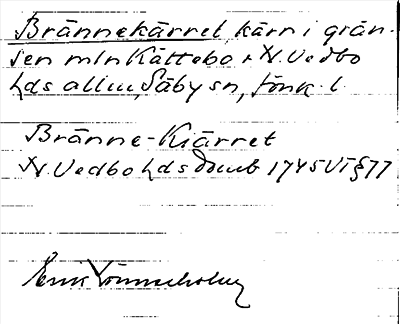 Brännekärret, kärn i grän-
sen mln Kättebo o N. Vedbo
hds allm, Säby sn, Jönk. l.
Bränne-Kiärret
N. Vedbo hds Domb 1745 VT §77
Erik